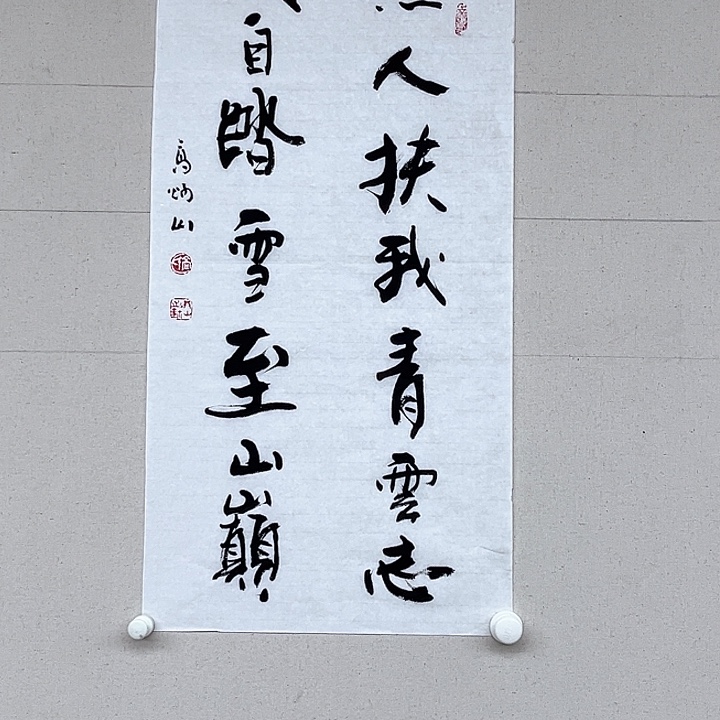 人扶我青雲志
自踏雪至山巔
高炳山